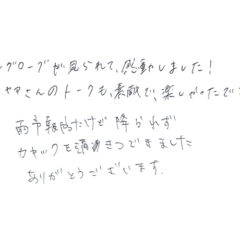 グローブが見られて、感動しました!
さんのトークも、素敵で、楽しかったで
雨予報だけど降られず
カヤックを満喫できました
ありがとうございます。